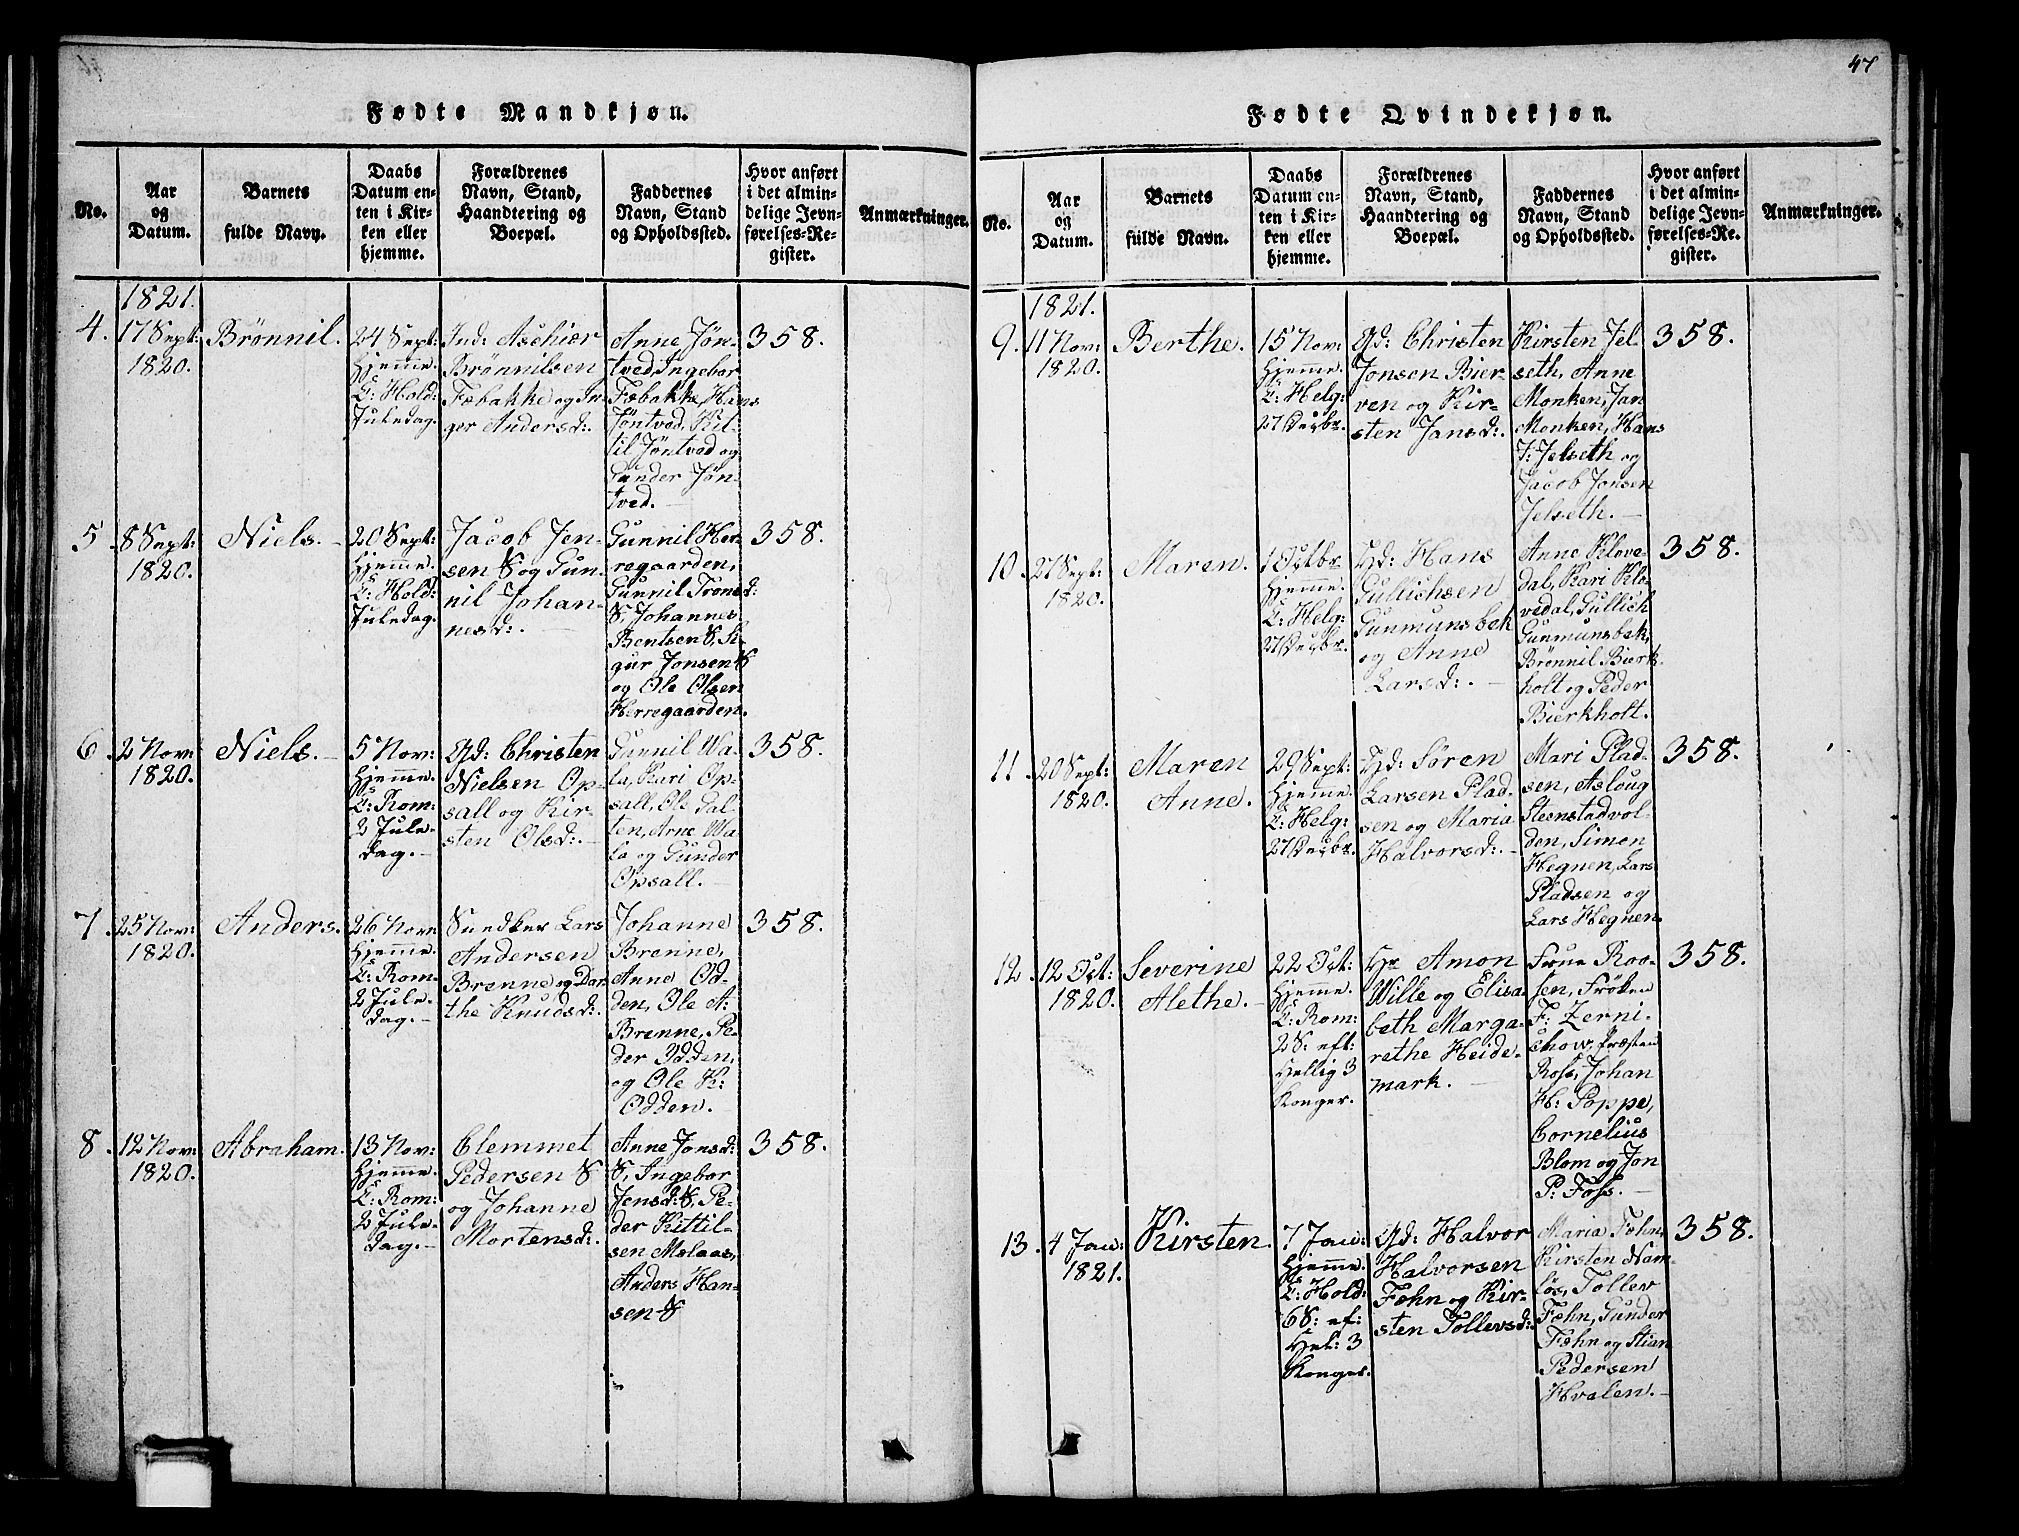 47
Fødte Mandkjøn.
No.
Aar
og
Datum.
Barnets
fulde Navn.
Daabs
Datum en-
ten i Kir-
ken eller
hjemme.
Forældrenes
Navn, Stand,
Haandtering og
Boepæl.
Faddernes
Navn, Stand
og Opholdssted.
Hvor anført
i det almin-
delige Jevn-
førelses-Re-
gister.
Anmærkninger.
1821.
4.
17 Sept:
1820.
Brønnil.
24 Sept:
Hjemme.
C: Hold:
Juledag.
Ind: Aschier
Brønnilsen
Fæbakke og In-
ger Andersd:.
Anne Jøn-
tved, Ingebor
Fæbakke, Hans
Jøntved, Kit-
til Jøntved og
Gunder Jøn-
tved.
358.
5.
8 Sept:
1820.
Niels.
20 Sept:
Hjemme.
C: Hold:
Juledag.
Jacob Jen-
sen S og Gun-
nil Johan-
nesd:.
Gunnil Her-
regaarden,
Gunnil Tronsd:
S, Johannes
Bentsen S, Si-
gur Jonsen S
og Ole Olsen
Herregaarden.
358.
6.
2 Nov:
1820.
Niels.
5 Nov:
Hjemme.
C: Rom:
2 Jule-
dag.
Gd: Christen
Nielsen Op-
sall og Kir-
sten Olsd:.
Gunnil Wa-
la, Kari Op-
sall, Ole Dal-
ten, Arne Wa-
la og Gunder
Opsall.
358.
7.
25 Nov:
1820.
Anders.
26 Nov:
Hjemme.
C: Rom:
2 Jule-
dag.
Lars
Andersen
Brenne og Dor-
the Knudsd:.
Johanne
Brenne,
Anne Od-
den, Ole A:
Brenne, Pe-
der Odden,
og Ole K:
Odden.
358.
8.
12 Nov:
1820.
Abraham.
13 Nov:
Hjemme.
C: Rom:
2 Jule-
dag.
Clemmet
Pedersen S
og Johanne
Mortensd:.
Anne Jonsd:
S, Ingebor
Jensd: S, Pe-
der Kittil-
sen Melaas,
Anders Han-
sen S
358.
Fødte Qvindekjøn.
No.
Aar
og
Datum.
Barnets
fulde Navn.
Daabs
Datum en-
ten i Kir-
ken eller
hjemme.
Forældrenes
Navn, Stand,
Haandtering og
Boepæl.
Faddernes
Navn, Stand
og Opholdssted.
Hvor anført
i det almin-
delige Jevn-
førelses-Re-
gister.
Anmærkninger.
1821.
9.
11 Nov:
1820.
Berthe.
15 Nov:
Hjemme.
C: Helg:
27 Decbr.
Gd: Christen
Jonsen Bier-
ven og Kir-
sten Jansd:.
Kirsten Jel-
seth, Anne
Monken, Jan
Monken, Hans
J: Jelseth og
Jacob Jonsen
Jelseth.
358.
10.
27 Sept:
1820.
Maren.
1 Octbr
Hjemme.
C: Helg:
27 Decbr.
Hd: Hans
Gullichsen
Gunmunsbek
og Anne
Larsd:.
Anne Klove-
dal, Kari Klo-
vedal, Gullich
Gunmunsbek,
Brønnil Bierk-
holt og Peder
Bierkholt.
358.
11.
20 Sept:
1820.
Maren
Anne.
29 Sept:
Hjemme.
C: Helg:
27 Decbr.
Hd: Søren
Larsen Plad-
sen og Maria
Halvorsd:.
Mari Plad-
sen, Asloug
Steenstadvol-
den, Simon
Hegnen, Lars
Pladsen og
Lars Hegnen.
358.
12.
12 Oct:
1820.
Severine
Alethe.
22 Oct:
Hjemme.
C: Rom:
2 S: eft:
Hellig 3
Konger.
Hr Amon
Wille og Elisa-
beth Marga-
rethe Heide-
mark.
Frue Roo-
sen, Frøken
F: Zerni-
chow, Præsten
Ross, Johan
H: Poppe,
Cornelius
Blom og Jon
P: Foss.
358.
13.
4 Jan:
1821.
Kirsten.
7 Jan:
Hjemme.
C: Hold:
6 S: ef:
Hel: 3
Konger.
Gd: Halvor
Halvorsen
Fæhn og Kir-
sten Tollevsd:.
Maria Fæhn,
Kirsten Nam-
løs, Tollev
Fæhn, Gunder
Fæhn og Stian
Pedersen
Hvalen.
358.